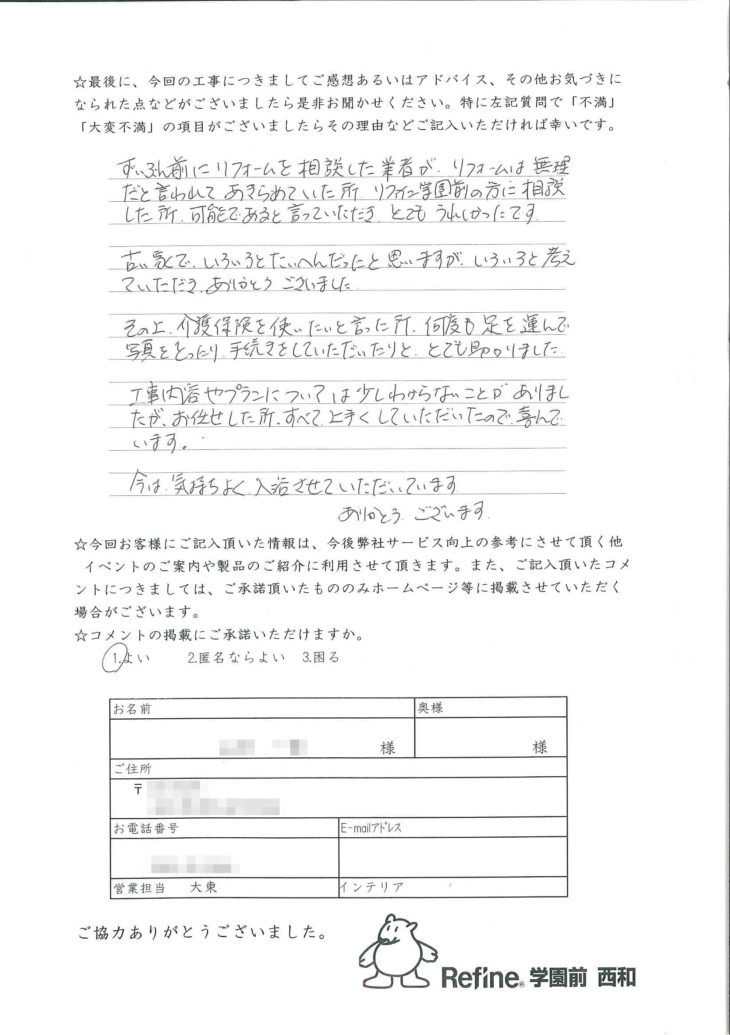 ☆最後に、今回の工事につきましてご感想あるいはアドバイス、その他お気づきに
なられた点などがございましたら是非お聞かせください。特に左記質問で「不満」
「大変不満」の項目がございましたらその理由などご記入いただければ幸いです。
ずいぶん前にリフォームを相談した業者が、リフォームは無理
だと言われて あきらめていた所、リファイン学園前の方に相談
した所、可能であると言っていただき、とてもうれしかったです
古い家で、いろいろとたいへんだったと思いますが、いろいろと考え
ていただき、ありがとうございました
その上、介護保険を使いたいと言った所、何度も足を運んで
写真をとったり、手続きをしていただいたりと、とても助かりました
工事内容やプランについては少しわからないことがありまし
たが、お任せした所、すべて上手くしていただいたので、喜んで
います。
今は、気持ちよく入浴させていただいています
ありがとうございます
☆今回お客様にご記入頂いた情報は、今後弊社サービス向上の参考にさせて頂く他
イベントのご案内や製品のご紹介に利用させて頂きます。また、ご記入頂いたコメ
ントにつきましては、ご承諾頂いたもののみホームページ等に掲載させていただく
場合がございます。
☆コメントの掲載にご承諾いただけますか。
1.よい 2.匿名ならよい 3.困る
お名前 奥様
様 様
ご住所
〒
お電話番号 E-mailアドレス
営業担当 大東 インテリア
ご協力ありがとうございました。
Refine® 学園前 西和